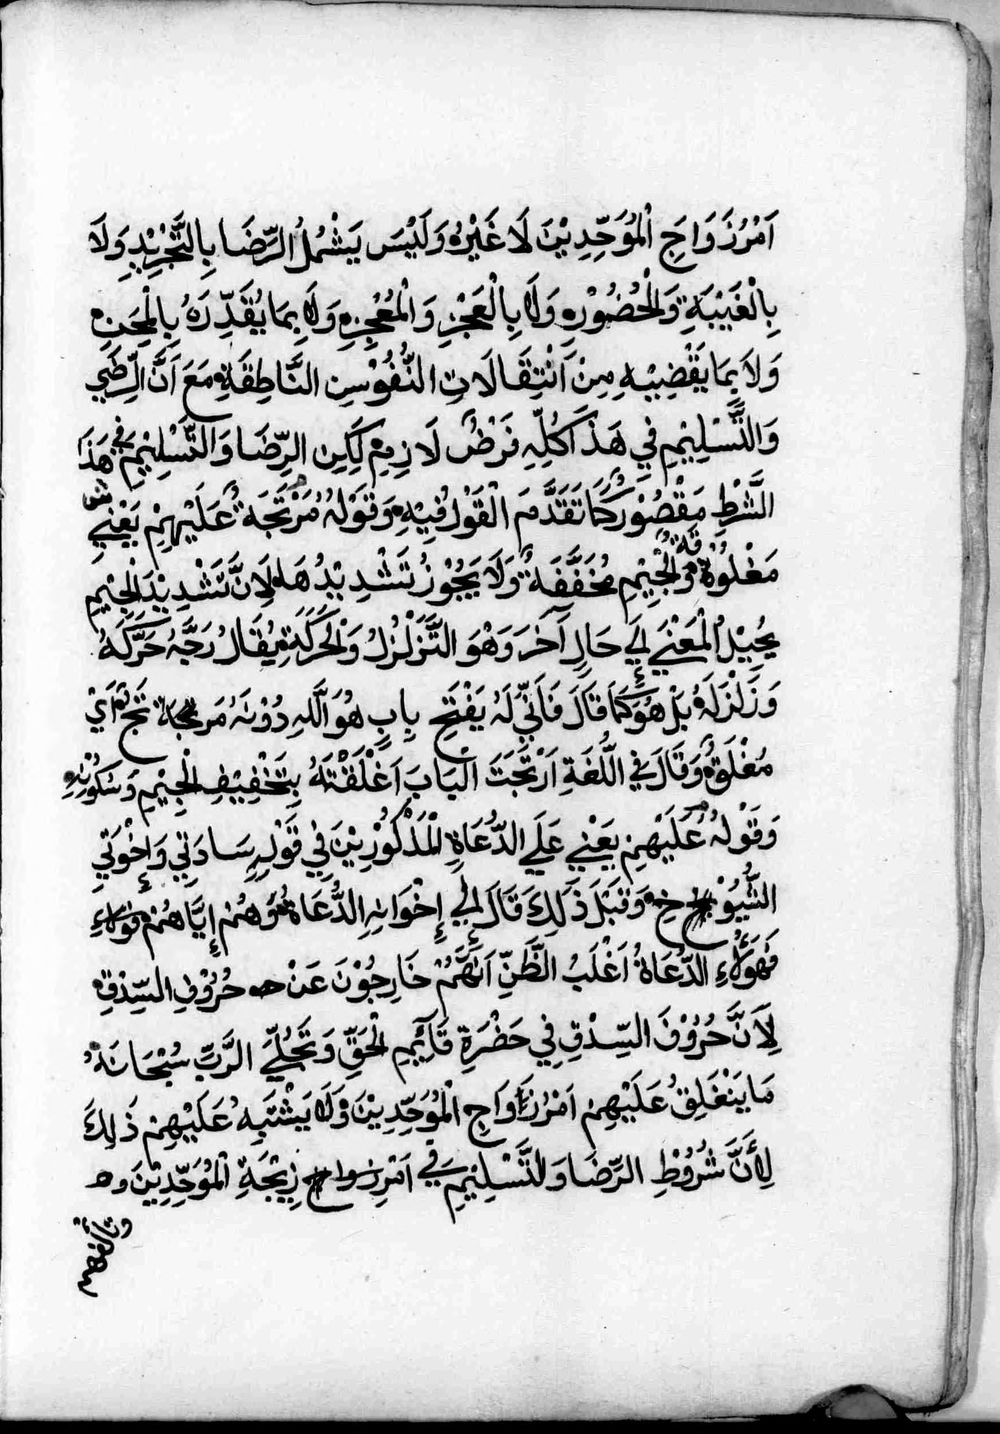 اَمْرُ زَوَاجِ الْمُوَحِّدِيْنَ لَا غَيْرُهُ وَلَيْسَ يَشْمُلُ الرِّضَا بِالتَّجْرِيْدِ وَلَا
بِالْغَيْبَةِ وَالْحُضُوْرِ وَلَا بِالْعَجْزِ وَالْمُعْجِزِ وَلَا بِمَا يُقَدِّرَهُ بِالْمِحَنِ
وَلَا بِمَا يَقْضِيْهِ مِنْ اَنْتِقَالَاتِ النُّفُوْسِ النَّاطِقَةِ مَعَ اَنَّ الرِّضَي
وَالتَّسْلِيْمِ فِي هَذَا كُلِّهِ فَرْضٌ لَازِمٌ لَكِنِ الرِّضَا وَالتَّسْلِيْمِ فِي هَذَا
الشَّرْطِ مَقْصُوْرٌ كَمَا تَقَدَّمَ الْقَوْلُ فِيْهِ وَقَوْلُهُ مُرْتَجَةٌ عَلَيْهِمْ يَعْنِي
مَغْلُوْقَةٌ وَالْجِيْمِ مُخَفَّفَةٌ وَلَا يَجُوْزُ تَشْدِيْدُهَا لِاَنَّ تَشْدِيْدَ الْجِيْمِ
يُحِيْلُ الْمَعْنَي اِلَي حَالٍ آخَرَ وَهْوَ التَّزَلْزُلُ وَالْحَرَكَةِ يُقَالُ رَجَّهُ حَرَّكَهُ
وَزَلْزَلَهُ بَلْ هُوَ كَمَا قَالَ فَاَنِّي لَهُ يَفْتَحِ بِابٍ هُوَ اللهِ دُوْنَهُ مرتجة اَيْ
مُغْلَقٌ وَقَالَ فِي اللُّغَةِ اَرْتَجَتَ الْبَابَ اَغْلَقْتَهُ بِتَخْفِيْفِ الْجِيْمِ وَسُكُوْنِهِ
وَقَوْلُهُ عَلَيْهِمْ يَعْنِي عَلَي الدُّعَاةِ الْمَذْكُوْرِيْنَ فِي قَوْلِهِ سَادَتِي وَاِخْوَتِي
الشُّيُوْخِ وَقَبْلَ ذَلِكَ قَالَ اِلَي اِخْوَانِهِ الدُّعَاةِ وَهُمْ اِيَّاهُمْ هَؤُلَاءِ
فَهَؤُلَاءِ الدُّعَاةُ اَغْلَبُ الظَّنِّ اَنَّهُمْ خَارِجُوْنَ عَنْ حُرُوْفِ السِّدْقِ
لِاَنَّ حُرُوْفَ السِّدْقِ فِي حَضْرَةِ قَآئِمِ الْحَقِّ وَتَجَلِّيَ الرَّبِّ سُبْحَانَهُ
مَا يَنْغَلِقُ عَلَيْهِمْ اَمْرُ زَوَاجِ الْمُوَحِّدِيْنَ وَلَا يَشْتَبِهُ عَلَيْهِمْ ذَلِكَ
لِاَنَّ شُرُوْطِ الرِّضَا وَالتَّسْلِيْمِ فِي اَمْرِ زِيْجَةِ الْمُوَحِّدِيْنَ